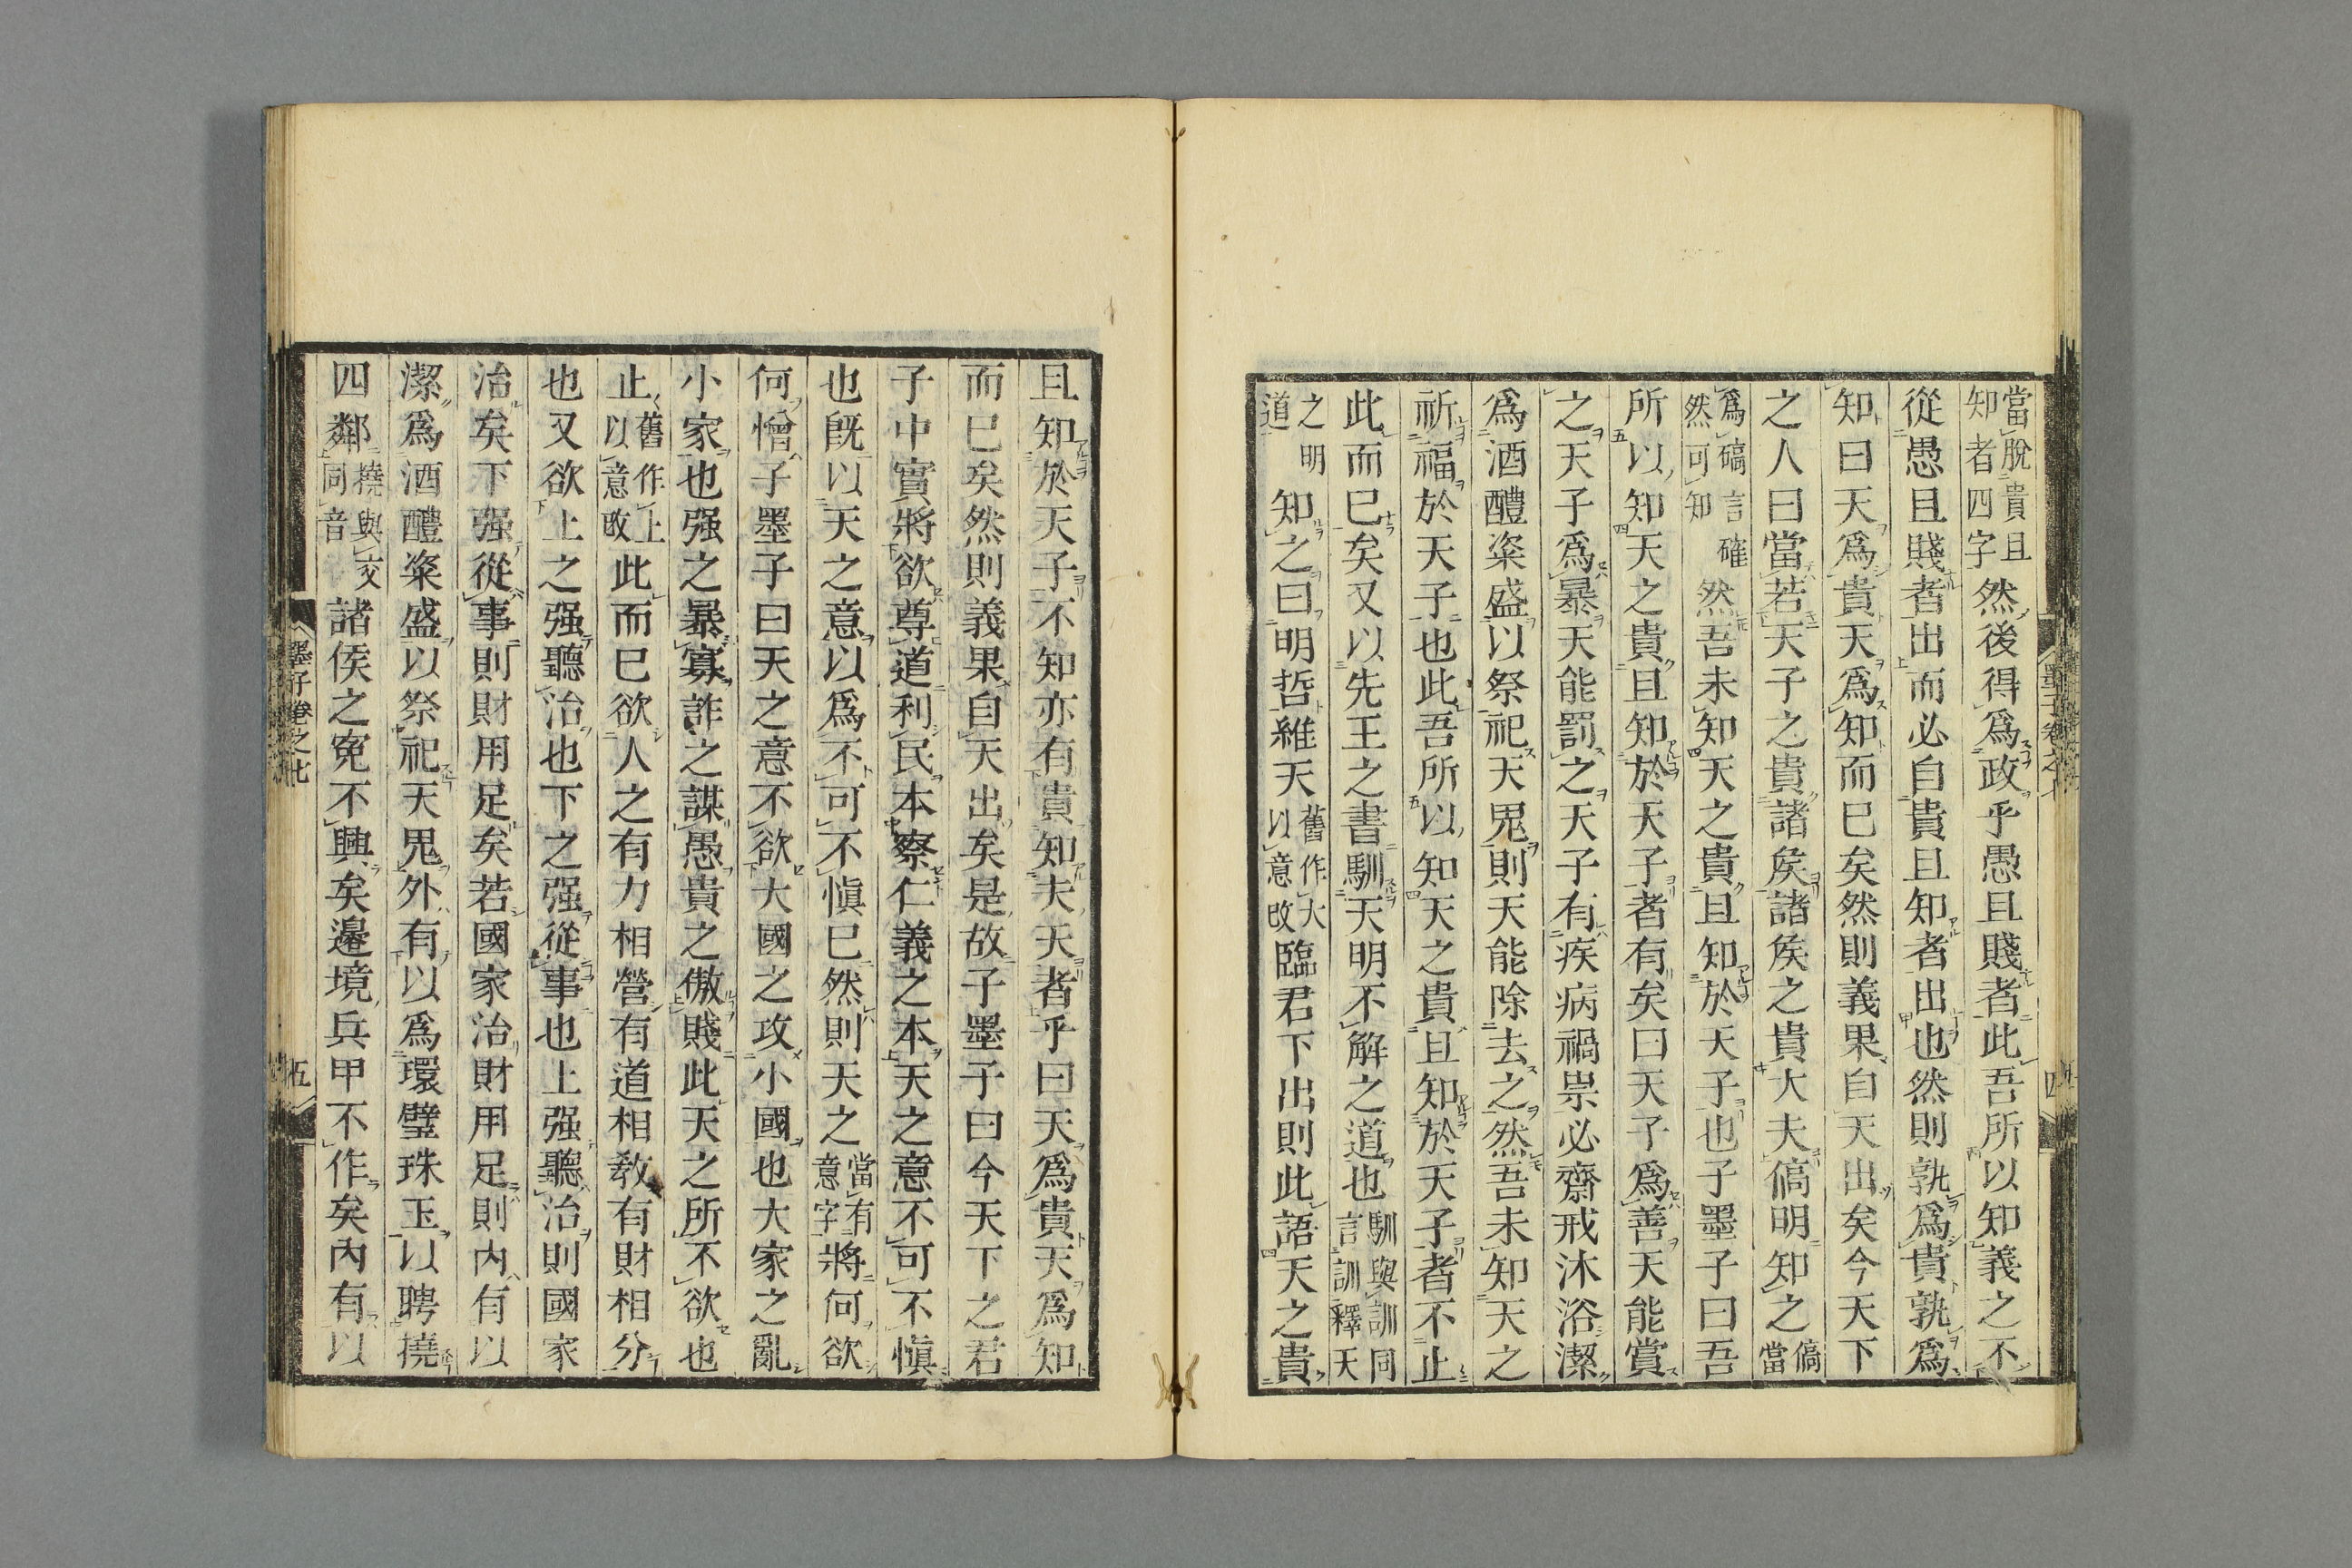 當脫貴且知者四字然後得爲政乎愚且賤者此吾所以知義之不
從愚且賤者出而必自貴且知者出也然則孰爲貴孰爲
知曰天爲貴天爲知而已矣然則義果自天出矣今天下
之人曰當若天子之貴諸矦諸矦之貴大夫傐明知之傐當
爲碻言確然可知然吾未知天之貴且知於天子也子墨子曰吾
所以知天之貴且知於天子者有矣曰天子爲善天能賞
之天子爲暴天能罰之天子有疾病禍祟必齋戒沐浴潔
爲酒醴粢盛以祭祀天鬼則天能除去之然吾未知天之
祈福於天子也此吾所以知天之貴且知於天子者不止
此而已矣又以先王之書馴天明不解之道也馴與訓同言訓釋天
之明道知之曰明哲維天舊作大以意改臨君下出則此語天之貴
且知於天子不知亦有貴知夫天者乎曰天爲貴天爲知
而已矣然則義果自天出矣是故子墨子曰今天下之君
子中實將欲尊道利民本察仁義之本天之意不可不慎
也旣以天之意以爲不可不慎已然則天之當有意字將何欲
何憎子墨子曰天之意不欲大國之攻小國也大家之亂
小家也强之暴寡詐之謀愚貴之傲賤此天之所不欲也
止舊作上以意改此而已欲人之有力相營有道相教有財相分
也又欲上之强聽治也下之强從事也上强聽治則國家
治矣下强從事則財用足矣若國家治財用足則內有以
潔爲酒醴粢盛以祭祀天鬼外有以爲環璧珠玉以聘撓
四鄰撓與交同音諸矦之寃不興矣邊境兵甲不作矣內有以
墨子卷之七
四
墨子卷之七
五